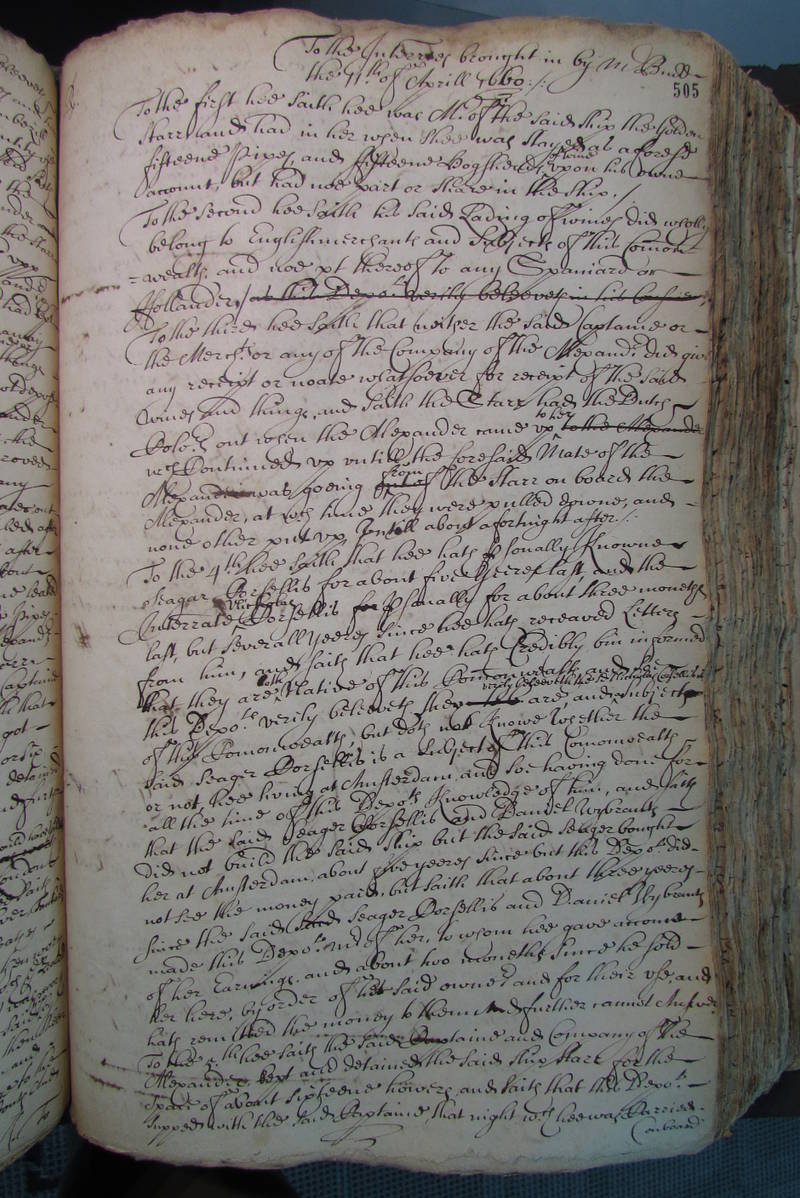 To the Interries brought in by Mr Budd
the 11th of Aprill 1660:/:
505
To the first hee saith hee was Mr of the said ship the Golden
Starr and had in her when shee was stayed as aforesd
fifteene Pipes and fifteene Hogsheads of wine upon his owne
account, but had noe part or share in the ship./
To the second hee saith his said Lading of wines did wholly
belong to English merchants and Subjects of this Comon-
=wealth, and noe pt thereof to any Spaniard or
Hollander, as this Depot verily beleeveth in his Conscience
To the third hee saith that neither the said Captaine or
the Mercht or any of the Company of the Alexandr did give
any receipt or noate whatsoever for receipt of the said
wines and things, and saith the Starr had the Dutch
Colors out when the Alexander came up to her to the Alexander
wch Continued up untill the foresaid Mate of the
Alexander was goeing from of the Starr on board the
Alexander, at wch time they were pulled downe, and
none other put up untill about a fortnight after/:
To the 4th hee saith that hee hath psonally Knowne
Seagar Corsellis for about five yeeres last, and the
Interrate Nicholas Corsellis for psonally for about three moneths
last, but severall yeeres since hee hath receaved Letters
from him, and saith that hee hath Credibly bin informed
that they are both Native of this Comonwealth and
this Depot verily beleeveth they are, and subjects
of this Comonwealth, but doth not Knowe whether the
said Seager Corsellis is a Subject of this Comonwealth
or not, hee living at Amsterdam, and soe having done for
all the time of this Depots Knowledge of him, and saith
that the said Seager Corsellis and Daniel Wybrants
did not build the said ship but the said Seager bought
her at Amsterdam about five yeeres since but this Depot did
not see the money paid, but saith that about three yeeres
since the said Seager Corsellis and Daniel Wybrants
made this Depot Mr of her, to whom hee gave accompt
of her Earnings, and about two moneths since he sold
her here, by order of her said ownes and for their use, and
hath remitted the money to them And further cannot Answer
To the 5th hee saith the said Captaine and Company of the
Alexander kept and detained the said ship Starr for the
space of about sixteene howers, and saith that this Depot
supped with the said Captaine that night wch hee was Carried
on board